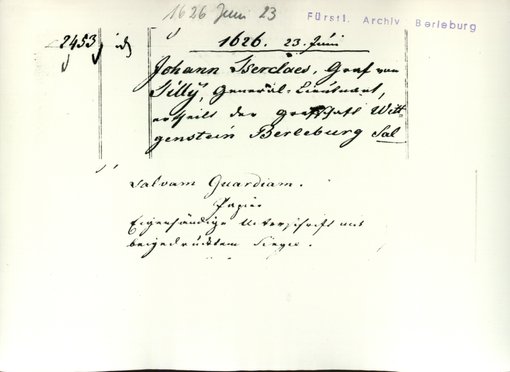 1626 Juni 23
Fürstl. Archiv Berleburg
2453
1626. 23. Juni
Johann Tserclaes, Graf von
Tilly, General-Lieutenant,
ertheilt der Grafschaft Witt-
genstein Berleburg Sal
salvam Guardiam.
Papier
Eigenhändige Unterschrift mit
beigedrucktem Siegel.